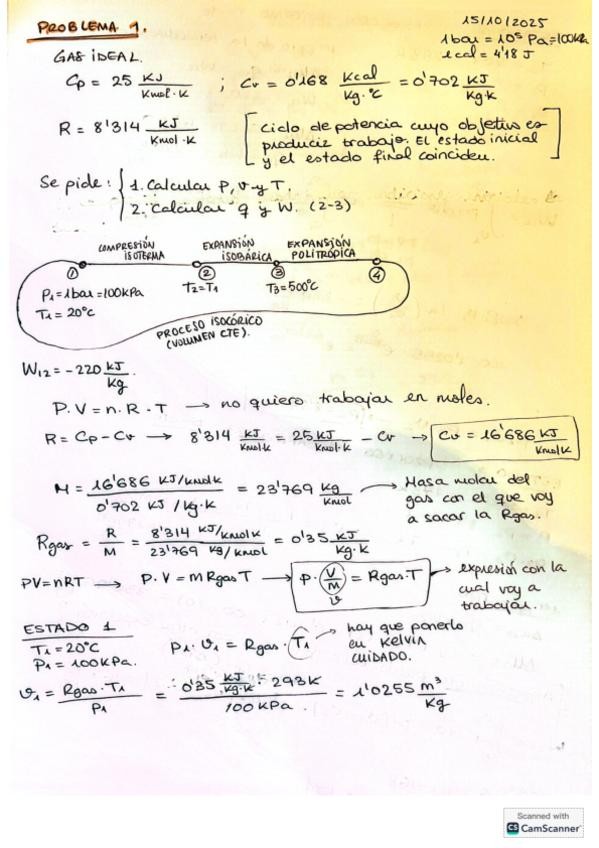 PROBLEMA 1.
15/10/2025
1 bar = 10⁵ Pa = 100 kPa
1 cal = 4'18 J
GAS IDEAL.
Cp = 25 KJ/Kmol·K ; Cv = 0'168 Kcal/Kg·°C = 0'702 KJ/Kg·K
R = 8'314 KJ/Kmol·K
[Ciclo de potencia cuyo objetivo es
producir trabajo. El estado inicial
y el estado final coinciden.]
Se pide: { 1. Calcular P, v y T.
2. Calcular q y W. (2-3)
COMPRESIÓN ISOTERMA
EXPANSIÓN ISOBÁRICA
EXPANSIÓN POLITRÓPICA
① ② ③ ④
P1 = 1bar = 100KPa
T1 = 20°C
T2 = T1
T3 = 500°C
PROCESO ISOCÓRICO
(VOLUMEN CTE).
W12 = -220 KJ/Kg.
P·V = n·R·T → no quiero trabajar en moles.
R = Cp - Cv → 8'314 KJ/Kmol·K = 25 KJ/Kmol·K - Cv → Cv = 16'686 KJ/Kmol·K
M = 16'686 KJ/KmolK / 0'702 KJ/Kg·K = 23'769 Kg/Kmol → Masa molar del
gas con el que voy
a sacar la Rgas.
Rgas = R/M = 8'314 KJ/KmolK / 23'769 Kg/Kmol = 0'35 KJ/Kg·K
PV = nRT → P·V = m Rgas T → P·(V/M) = Rgas·T → expresión con la
v
cual voy a
trabajar.
ESTADO 1
T1 = 20°C
P1 = 100KPa.
P1·v1 = Rgas·T1 → hay que ponerlo
en Kelvin
CUIDADO.
v1 = Rgas·T1 / P1 = 0'35 KJ/Kg·K · 293K / 100 KPa. = 1'0255 m³/Kg
Scanned with
CS CamScanner